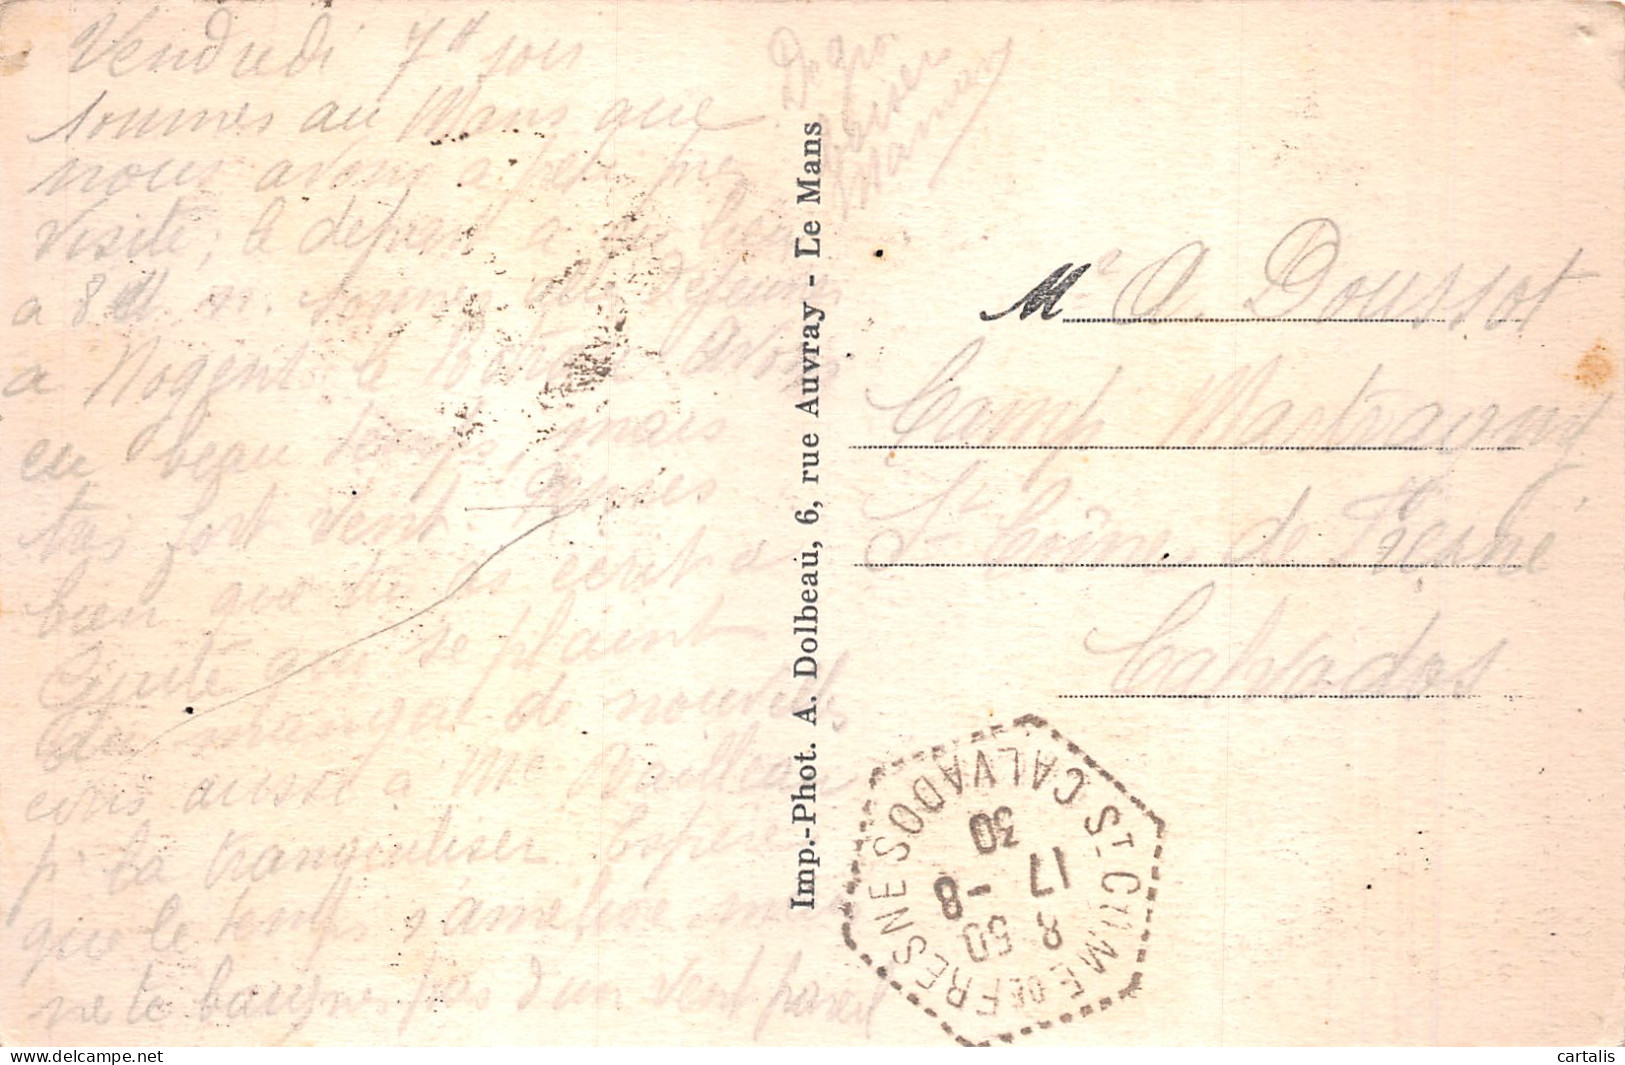 Vendredi 7h soir
sommes au Mans que
nous avons a peu pres
visité, le depart a eu lieu
a 8h sommes allé dejeuner
a Nogent le Rotrou avons
eu beau temps, mais
très fort vent. Penses
bien que tu as ecrit a
Ginité qui se plaint
du manque de nouvelles
ecris aussi a Me Wailleau
pr la tranquiliser Espère
que le temps s'améliore mais
ne te baignes pas d'un vent pareil
De gros
baisers
Maman
Imp.-Phot. A. Dolbeau, 6, rue Auvray - Le Mans
Me A. Doussot
Camp Martragny
St Côme de Fresné
Calvados
ST-CÔME DE FRESNE SOO CALVADOS
17 30
8 -8
50
cartalis